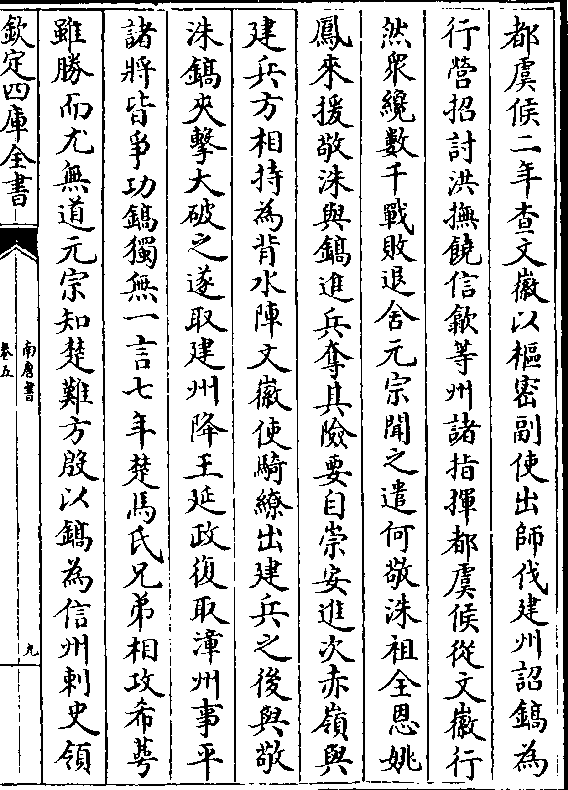 都虞候二年查文徽以樞密副使出師伐建州詔鎬為
行營招討洪撫饒信歙等州諸指揮都虞候從文徽行
然衆纔數千戰敗退舍元宗聞之遣何敬洙祖全恩姚
鳳來援敬洙與鎬進兵奪其險要自崇安進次赤嶺與
建兵方相持為背水陣文徽使騎繚出建兵之後與敬
洙鎬夾擊大破之遂取建州降王延政復取漳州事平
諸將皆爭功鎬獨無一言七年楚馬氏兄弟相攻希萼
雖勝而尤無道元宗知楚難方殷以鎬為信州刺史領
欽定四庫全書
南唐書
卷五
九